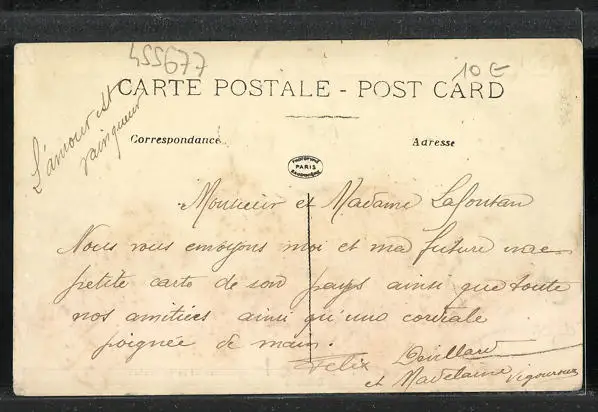 455677
10 E
CARTE POSTALE - POST CARD
L'amour est
vainqueur
Correspondance
Adresse
PARIS
Monsieur et Madame Lafontan
Nous vous envoyons moi et ma future une
petite carte de son pays ainsi que toute
nos amitiées ainsi qu'une cordiale
poignée de main.
Felix
et Madelaine Vigouroux